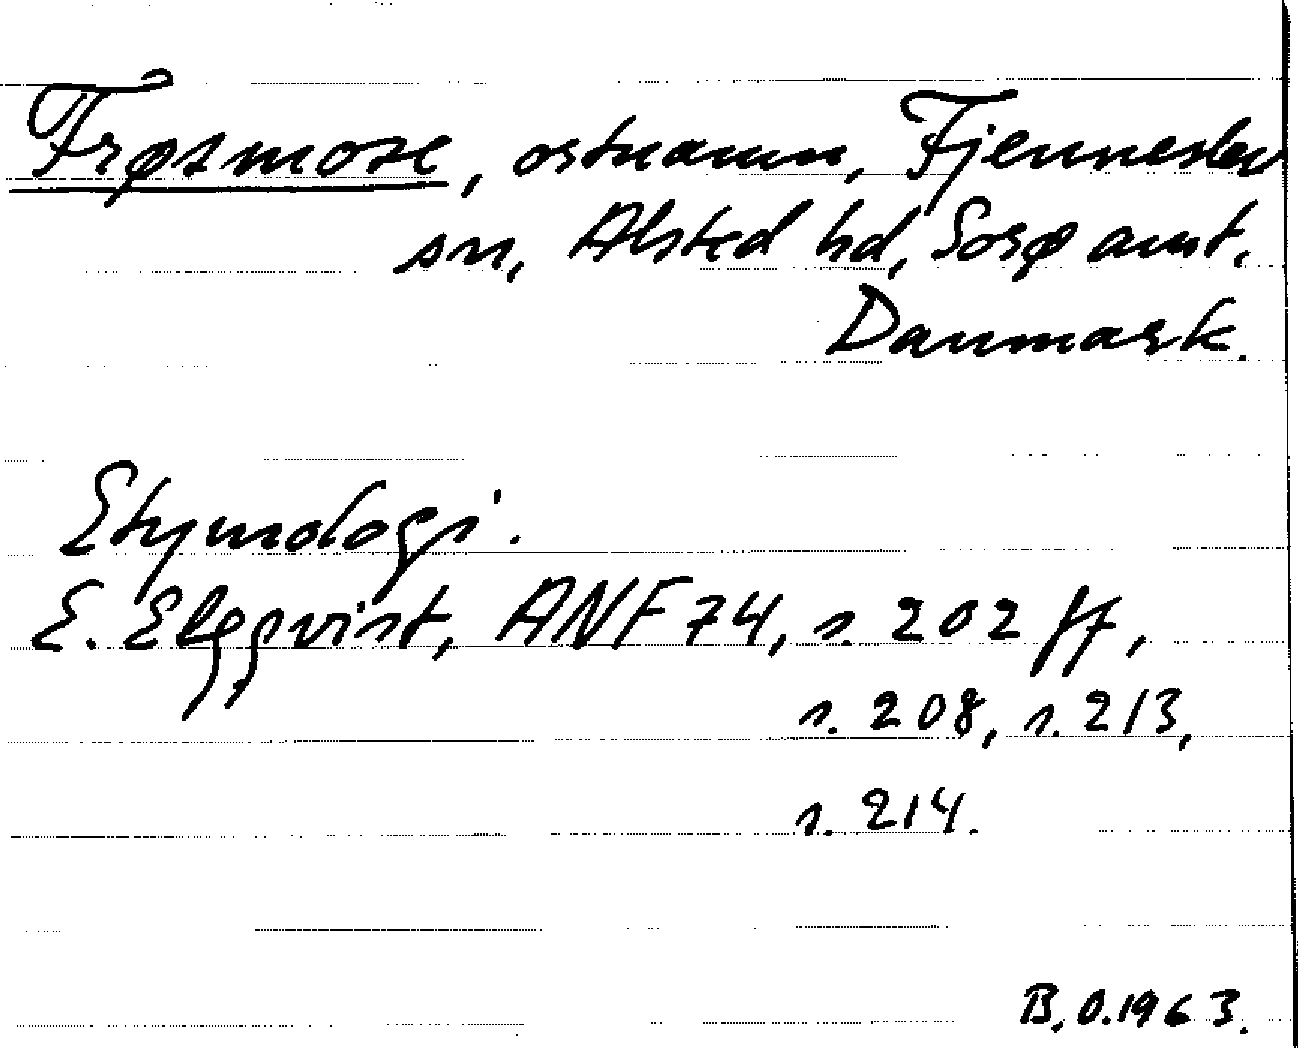 Frøsmose, ortnamn, Fjenneslev
sn, Alsted hd, Sorø amt,
Danmark.
Etymologi.
E. Elgqvist, ANF 74, s. 202 ff,
s. 208, s. 213,
s. 214.
B.O. 1963.